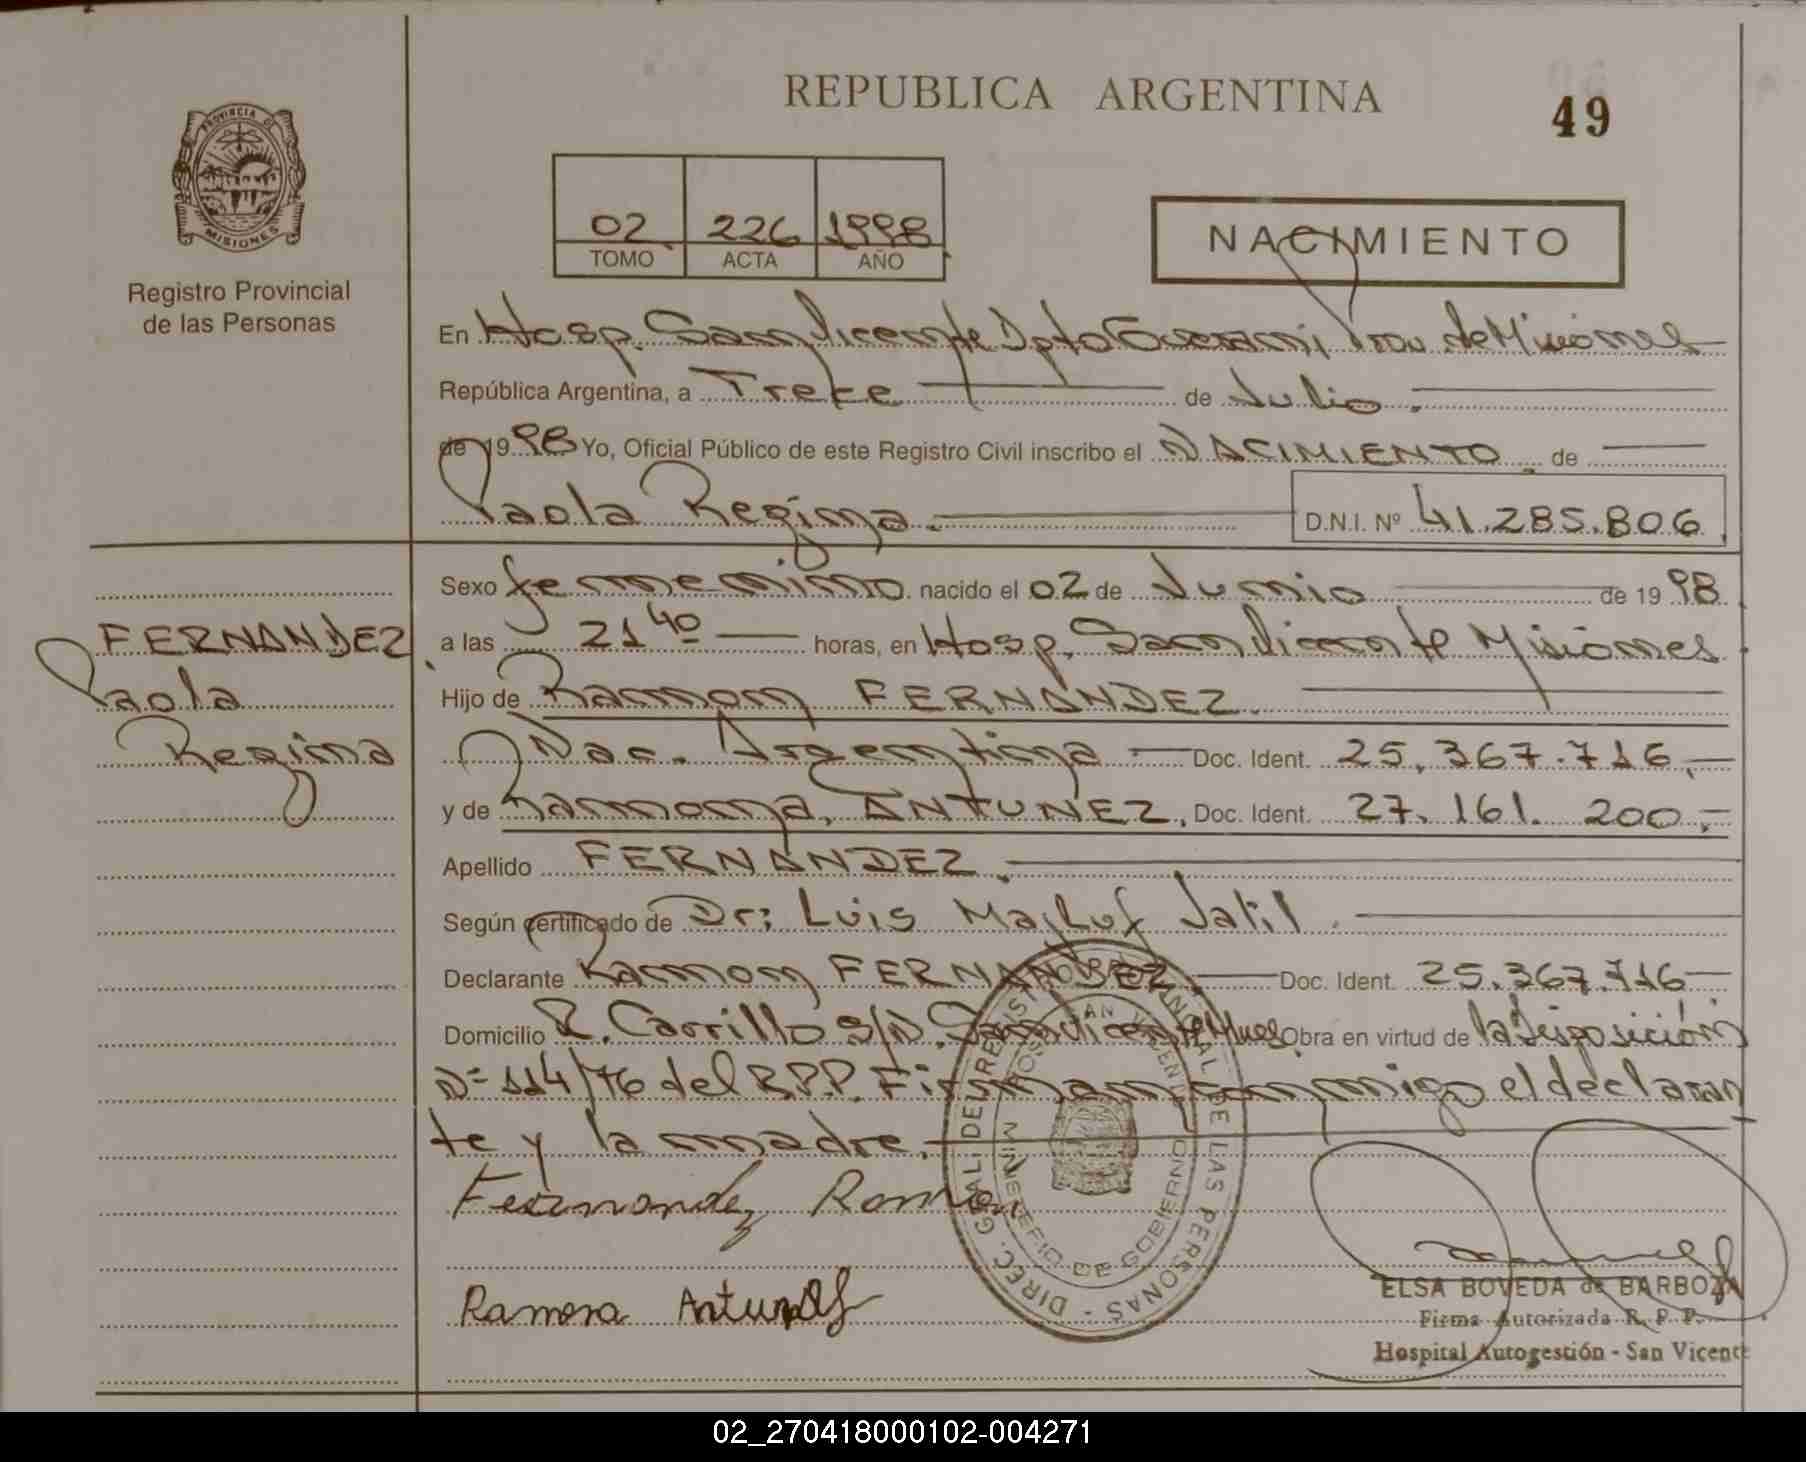 REPUBLICA ARGENTINA
49
PROVINCIA DE
MISIONES
Registro Provincial
de las Personas
02 226 1998
TOMO ACTA AÑO
NACIMIENTO
En Hosp. San Vicente Dpto Guarani Prov. de Misiones
República Argentina, a Trece de Julio.
de 1998 Yo, Oficial Público de este Registro Civil inscribo el NACIMIENTO. de
Paola Regina. D.N.I. Nº 41.285.806
FERNANDEZ
Paola
Regina
Sexo femenino nacido el 02 de Junio de 1998
a las 21 40 horas, en Hosp. San Vicente Misiones
Hijo de Ramon FERNANDEZ.
Nac. Argentina Doc. Ident. 25.367.716.
y de Ramona, ANTUNEZ, Doc. Ident. 27.161.200.
Apellido FERNANDEZ.
Según certificado de Dr; Luis Majluf Jalil.
Declarante Ramon FERNANDEZ. Doc. Ident. 25.367.716
Domicilio R. Carrillo S/N. San Vicente Mnes. Obra en virtud de la Disposición
Nº 114/76 del R.P.P. Firman conmigo el declaran
te y la madre.
Fernandez Ramon
Ramona Antunez
DIREC. GRAL. DEL REGISTRO PROVINCIAL DE LAS PERSONAS
HOSP. SAN VICENTE
MINISTERIO DE GOBIERNO
ELSA BOVEDA de BARBOZA
Firma Autorizada R. P. P.
Hospital Autogestión - San Vicente
02_270418000102-004271